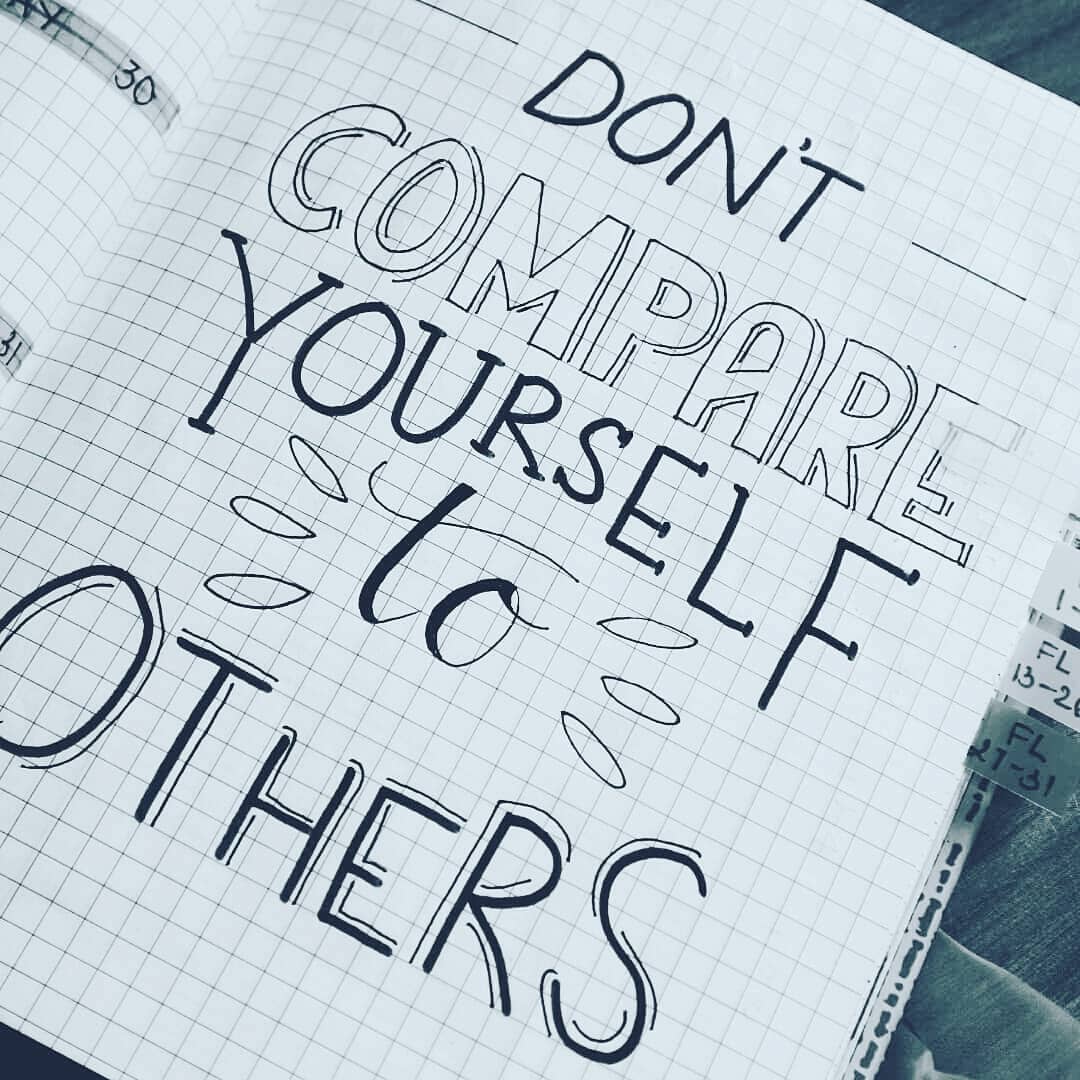 30
31
DON'T
COMPARE
YOURSELF
to
OTHERS
FL
13-20
FL
27-31